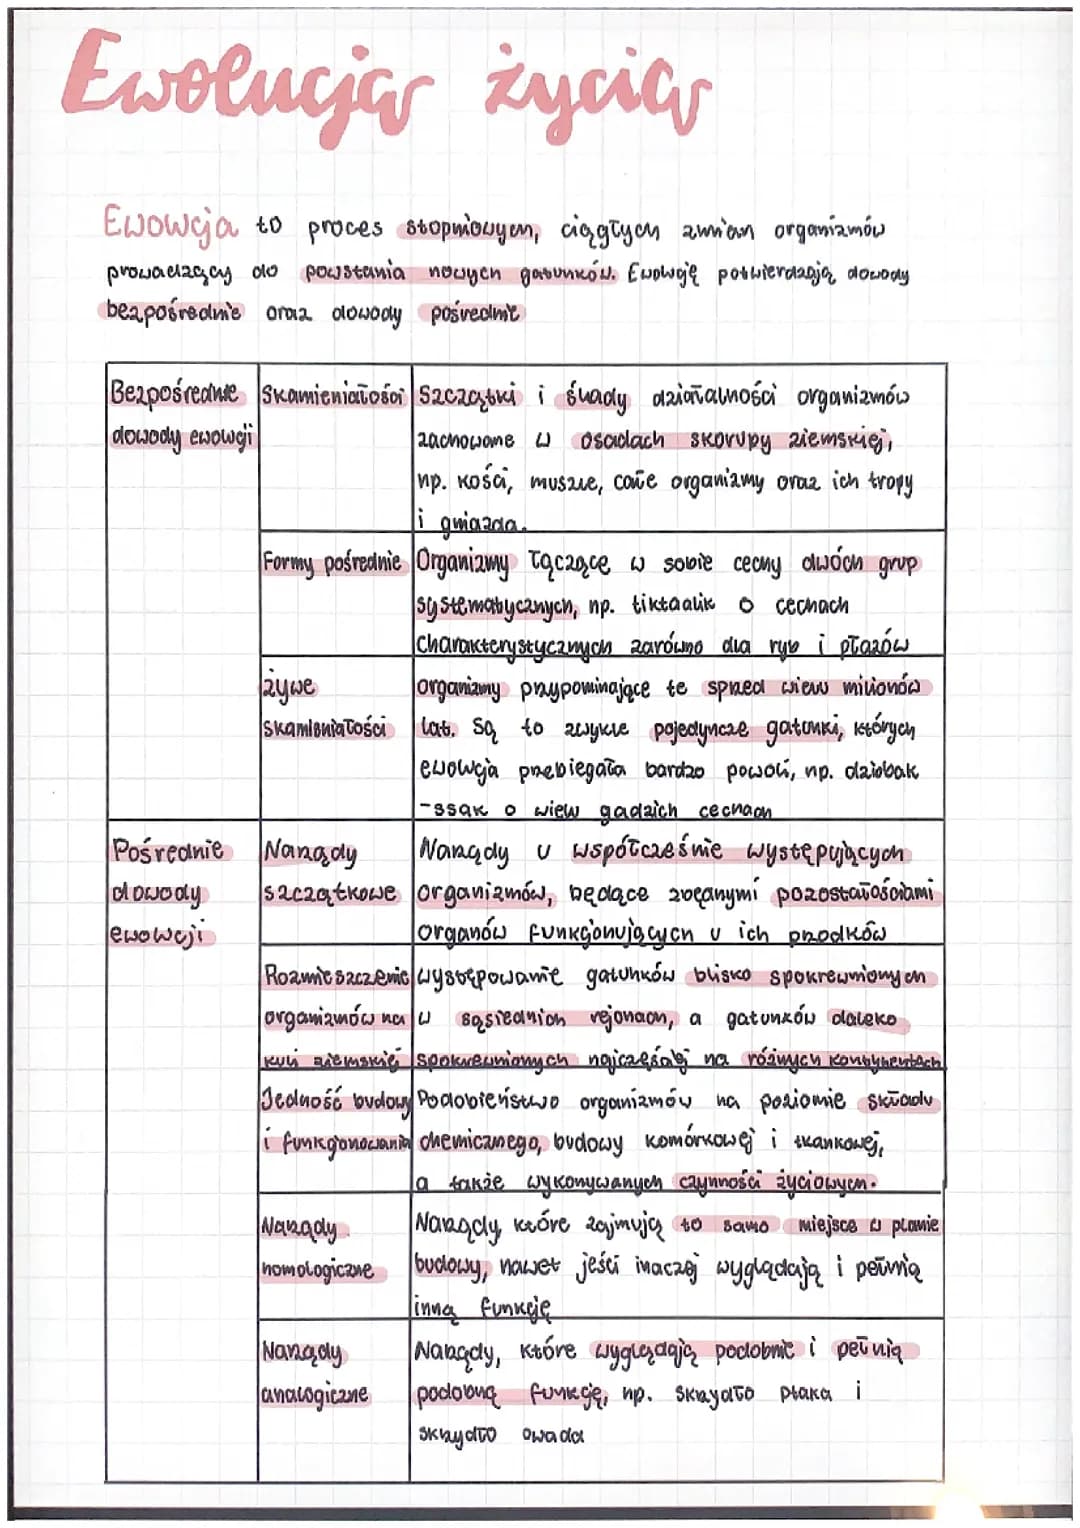 Ewolucja życia
Ewolucja to proces stopniowych, ciągłych zmian organizmów
prowadzący do powstania nowych gatunków. Ewolucję potwierdzają dowody
bezpośrednie oraz dowody pośrednie
Bezpośrednie
dowody ewolucji
Skamieniałości
Szczątki i ślady działalności organizmów
zachowane w osadach skorupy ziemskiej,
np. kości, muszle, całe organizmy oraz ich tropy
i gniazda.
Formy pośrednie
Organizmy łączące w sobie cechy dwóch grup
systematycznych, np. tiktaalik o cechach
charakterystycznych zarówno dla ryb i płazów
żywe
skamieniałości
organizmy przypominające te sprzed wielu milionów
lat. Są to zwykle pojedyncze gatunki, których
ewolucja przebiegała bardzo powoli, np. dziobak
-ssak o wielu gadzich cechach
Pośrednie
dowody
ewolucji
Narządy
szczątkowe
Narządy u współcześnie występujących
organizmów, będące zbędnymi pozostałościami
organów funkcjonujących u ich przodków
Rozmieszczenie
organizmów na
kuli ziemskiej
Występowanie gatunków blisko spokrewnionych
w sąsiednich rejonach, a gatunków daleko
spokrewnionych najczęściej na różnych kontynentach
Jedność budowy
i funkcjonowania
Podobieństwo organizmów na poziomie składu
chemicznego, budowy komórkowej i tkankowej,
a także wykonywanych czynności życiowych.
Narządy
homologiczne
Narządy, które zajmują to samo miejsce w planie
budowy, nawet jeśli inaczej wyglądają i pełnią
inną funkcję
Narządy
analogiczne
Narządy, które wyglądają podobnie i pełnią
podobną funkcję, np. skrzydło ptaka i
skrzydło owada